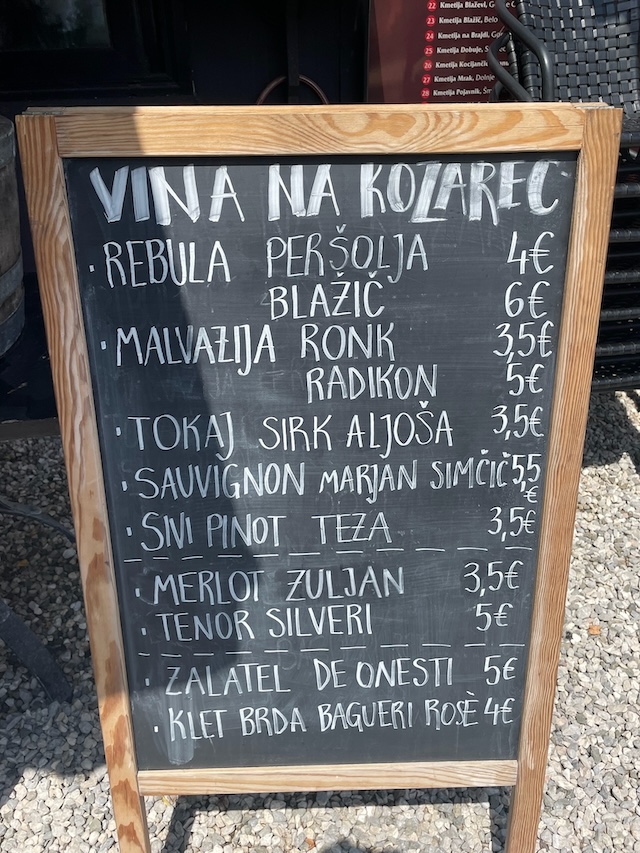 22 Kmetija Blaževi,
23 Kmetija Blažič,
24 Kmetija na Brajdi,
25 Kmetija Dobuje,
26 Kmetija Kocijančič
27 Kmetija Mrak, Dolnje
28 Kmetija Pojavnik,
VINA NA KOZAREC
· REBULA PERŠOLJA 4€
BLAŽIČ 6€
· MALVAZIJA RONK 3,5€
RADIKON 5€
· TOKAJ SIRK ALJOŠA 3,5€
· SAUVIGNON MARJAN SIMČIČ 5,5 €
· SIVI PINOT TEZA 3,5€
· MERLOT ZULJAN 3,5€
· TENOR SILVERI 5€
· ZALATEL DE ONESTI 5€
· KLET BRDA BAGUERI ROSÈ 4€